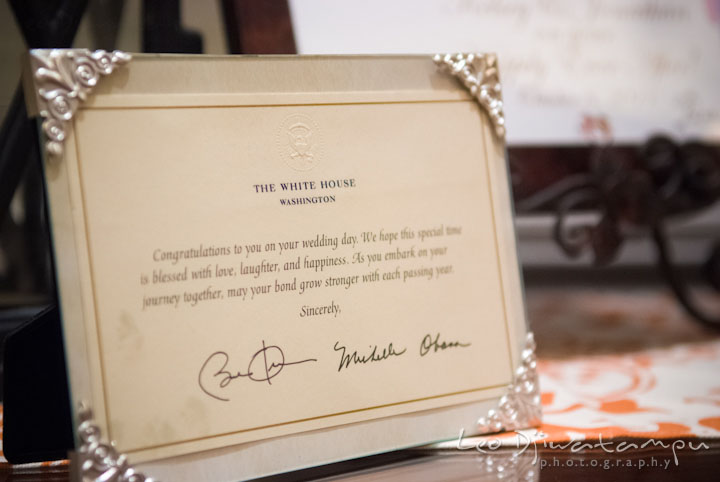 THE WHITE HOUSE
WASHINGTON
Congratulations to you on your wedding day. We hope this special time
is blessed with love, laughter, and happiness. As you embark on your
journey together, may your bond grow stronger with each passing year.
Sincerely,
Michelle Obama
Leo Dj Iwatampu
photography